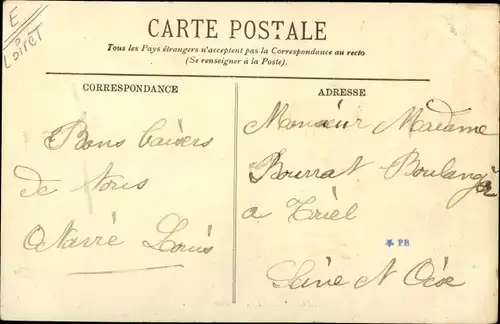 E
Loiret
CARTE POSTALE
Tous les Pays étrangers n'acceptent pas la Correspondance au recto
(Se renseigner à la Poste).
CORRESPONDANCE
Bons baisers
de Nous
Navré Louis
ADRESSE
Monsieur Madame
Bourrat Boulang
a Triel
* PB
Seine N Oise